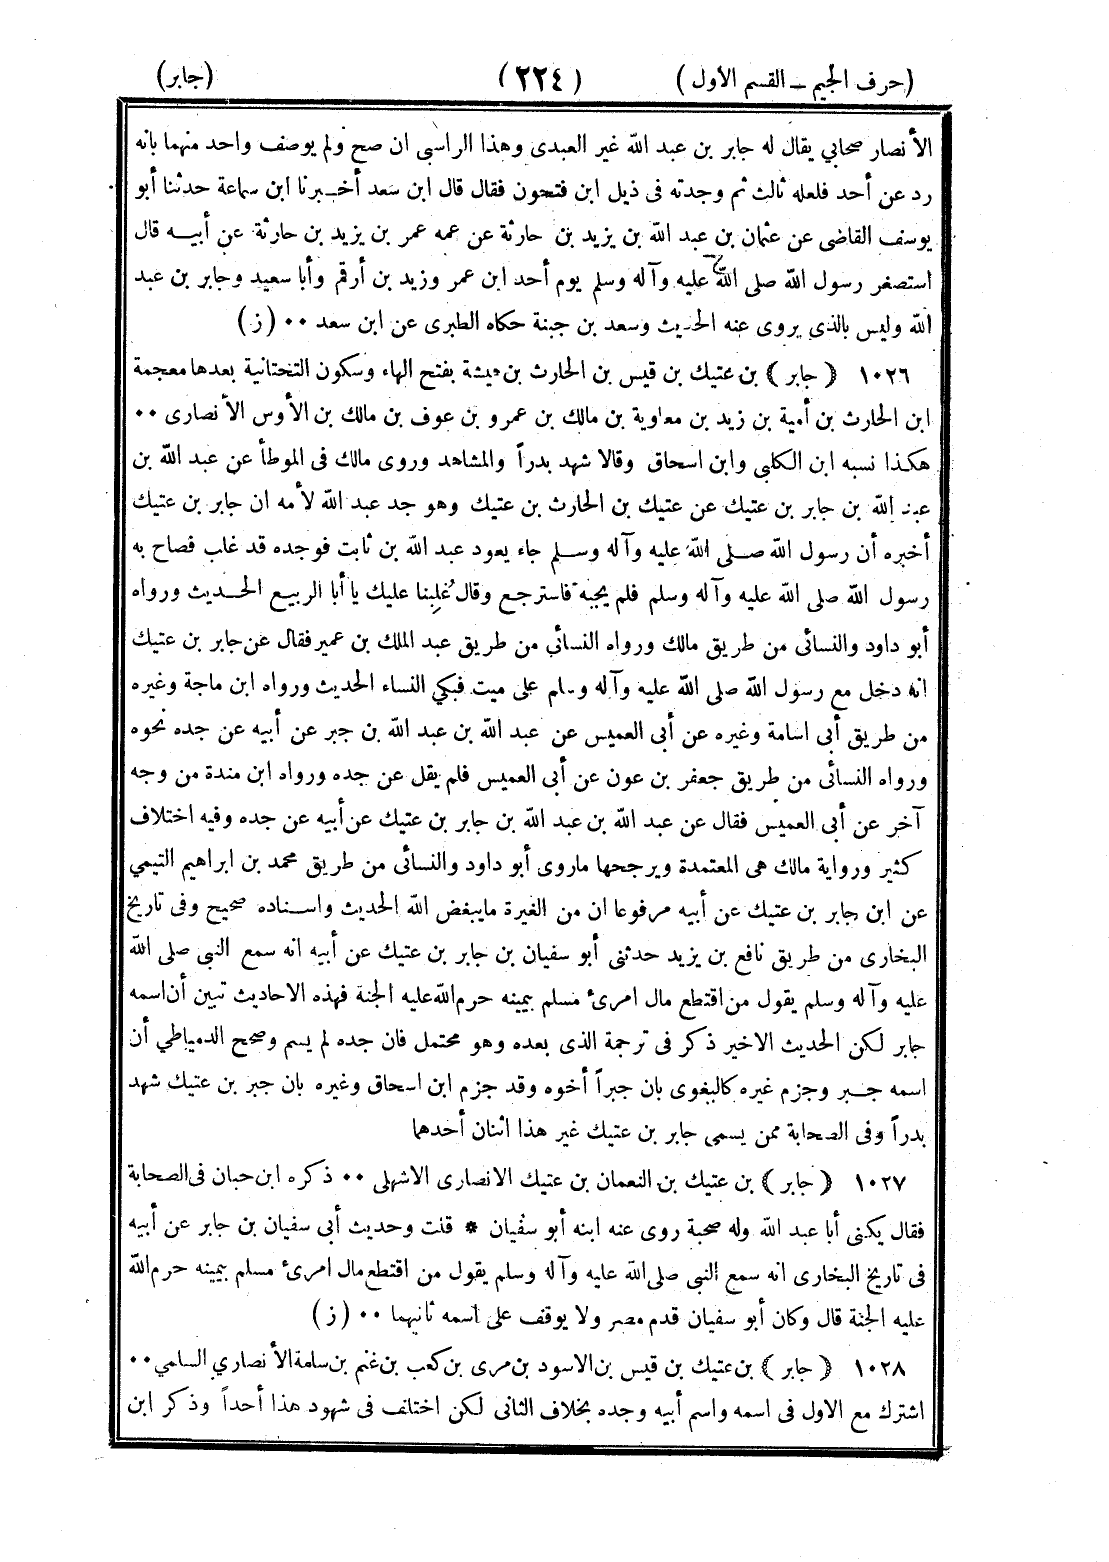 (حرف الجيم – القسم الأول) (٢٢٤) (جابر)
الأنصار صحابي يقال له جابر بن عبد الله غير العبدى وهذا الراسى ان صح ولم يوصف واحد منهما بانه
رد عن أحد فلعله ثالث ثم وجدته فى ذيل ابن فتحون فقال قال ابن سعد أخبرنا ابن سماعة حدثنا أبو
يوسف القاضى عن عثمان بن عبد الله بن يزيد بن حارثة عن عمه عمر بن يزيد بن حارثة عن أبيه قال
استصغر رسول الله صلى الله عليه وآله وسلم يوم أحد ابن عمر وزيد بن أرقم وأبا سعيد وجابر بن عبد
الله وليس بالذى يروى عنه الحديث وسعد بن حبتة حكاه الطبرى عن ابن سعد ٠٠ (ز)
١٠٢٦ ﴿ جابر ﴾ بن عتيك بن قيس بن الحارث بن هيشة بفتح الهاء وسكون التحتانية بعدها معجمة
ابن الحارث بن أمية بن زيد بن معاوية بن مالك بن عمرو بن عوف بن مالك بن الأوس الأنصارى ٠٠
هكذا نسبه ابن الكلبي وابن اسحاق وقالا شهد بدراً والمشاهد وروى مالك فى الموطأ عن عبد الله بن
عبد الله بن جابر بن عتيك عن عتيك بن الحارث بن عتيك وهو جد عبد الله لأمه ان جابر بن عتيك
أخبره أن رسول الله صلى الله عليه وآله وسلم جاء يعود عبد الله بن ثابت فوجده قد غلب فصاح به
رسول الله صلى الله عليه وآله وسلم فلم يجبه فاسترجع وقال غُلِبنا عليك يا أبا الربيع الحديث ورواه
أبو داود والنسائى من طريق مالك ورواه النسائي من طريق عبد الملك بن عمير فقال عن جابر بن عتيك
انه دخل مع رسول الله صلى الله عليه وآله وسلم على ميت فبكي النساء الحديث ورواه ابن ماجة وغيره
من طريق أبى اسامة وغيره عن أبى العميس عن عبد الله بن عبد الله بن جبر عن أبيه عن جده نحوه
ورواه النسائى من طريق جعفر بن عون عن أبى العميس فلم يقل عن جده ورواه ابن مندة من وجه
آخر عن أبى العميس فقال عن عبد الله بن عبد الله بن جابر بن عتيك عن أبيه عن جده وفيه اختلاف
كثير ورواية مالك هى المعتمدة ويرجحها ماروى أبو داود والنسائى من طريق محمد بن ابراهيم التيمي
عن ابن جابر بن عتيك عن أبيه مرفوعا ان من الغيرة مايبغض الله الحديث واسناده صحيح وفى تاريخ
البخارى من طريق نافع بن يزيد حدثنى أبو سفيان بن جابر بن عتيك عن أبيه انه سمع النبى صلى الله
عليه وآله وسلم يقول من اقتطع مال امرئ مسلم بيمينه حرم الله عليه الجنة فهذه الاحاديث تبين أن اسمه
جابر لكن الحديث الاخير ذكر فى ترجمة الذى بعده وهو محتمل فان جده لم يسم وصحح الدمياطي أن
اسمه جبر وجزم غيره كالبغوى بان جبراً أخوه وقد جزم ابن اسحاق وغيره بان جبر بن عتيك شهد
بدراً وفى الصحابة ممن يسمى جابر بن عتيك غير هذا اثنان أحدهما
١٠٢٧ ﴿ جابر ﴾ بن عتيك بن النعمان بن عتيك الانصارى الاشهلى ٠٠ ذكره ابن حبان فى الصحابة
فقال يكنى أبا عبد الله وله صحبة روى عنه ابنه أبو سفيان * قلت وحديث أبى سفيان بن جابر عن أبيه
فى تاريخ البخارى انه سمع النبى صلى الله عليه وآله وسلم يقول من اقتطع مال امرئ مسلم بيمينه حرم الله
عليه الجنة قال وكان أبو سفيان قدم مصر ولا يوقف على اسمه ثانيهما ٠٠ (ز)
١٠٢٨ ﴿ جابر ﴾ بن عتيك بن قيس بن الاسود بن مرى بن كعب بن غنم بن سلمة الأنصاري السلمي ٠٠
اشترك مع الاول فى اسمه واسم أبيه وجده بخلاف الثانى لكن اختلف فى شهود هذا أحداً وذكر ابن